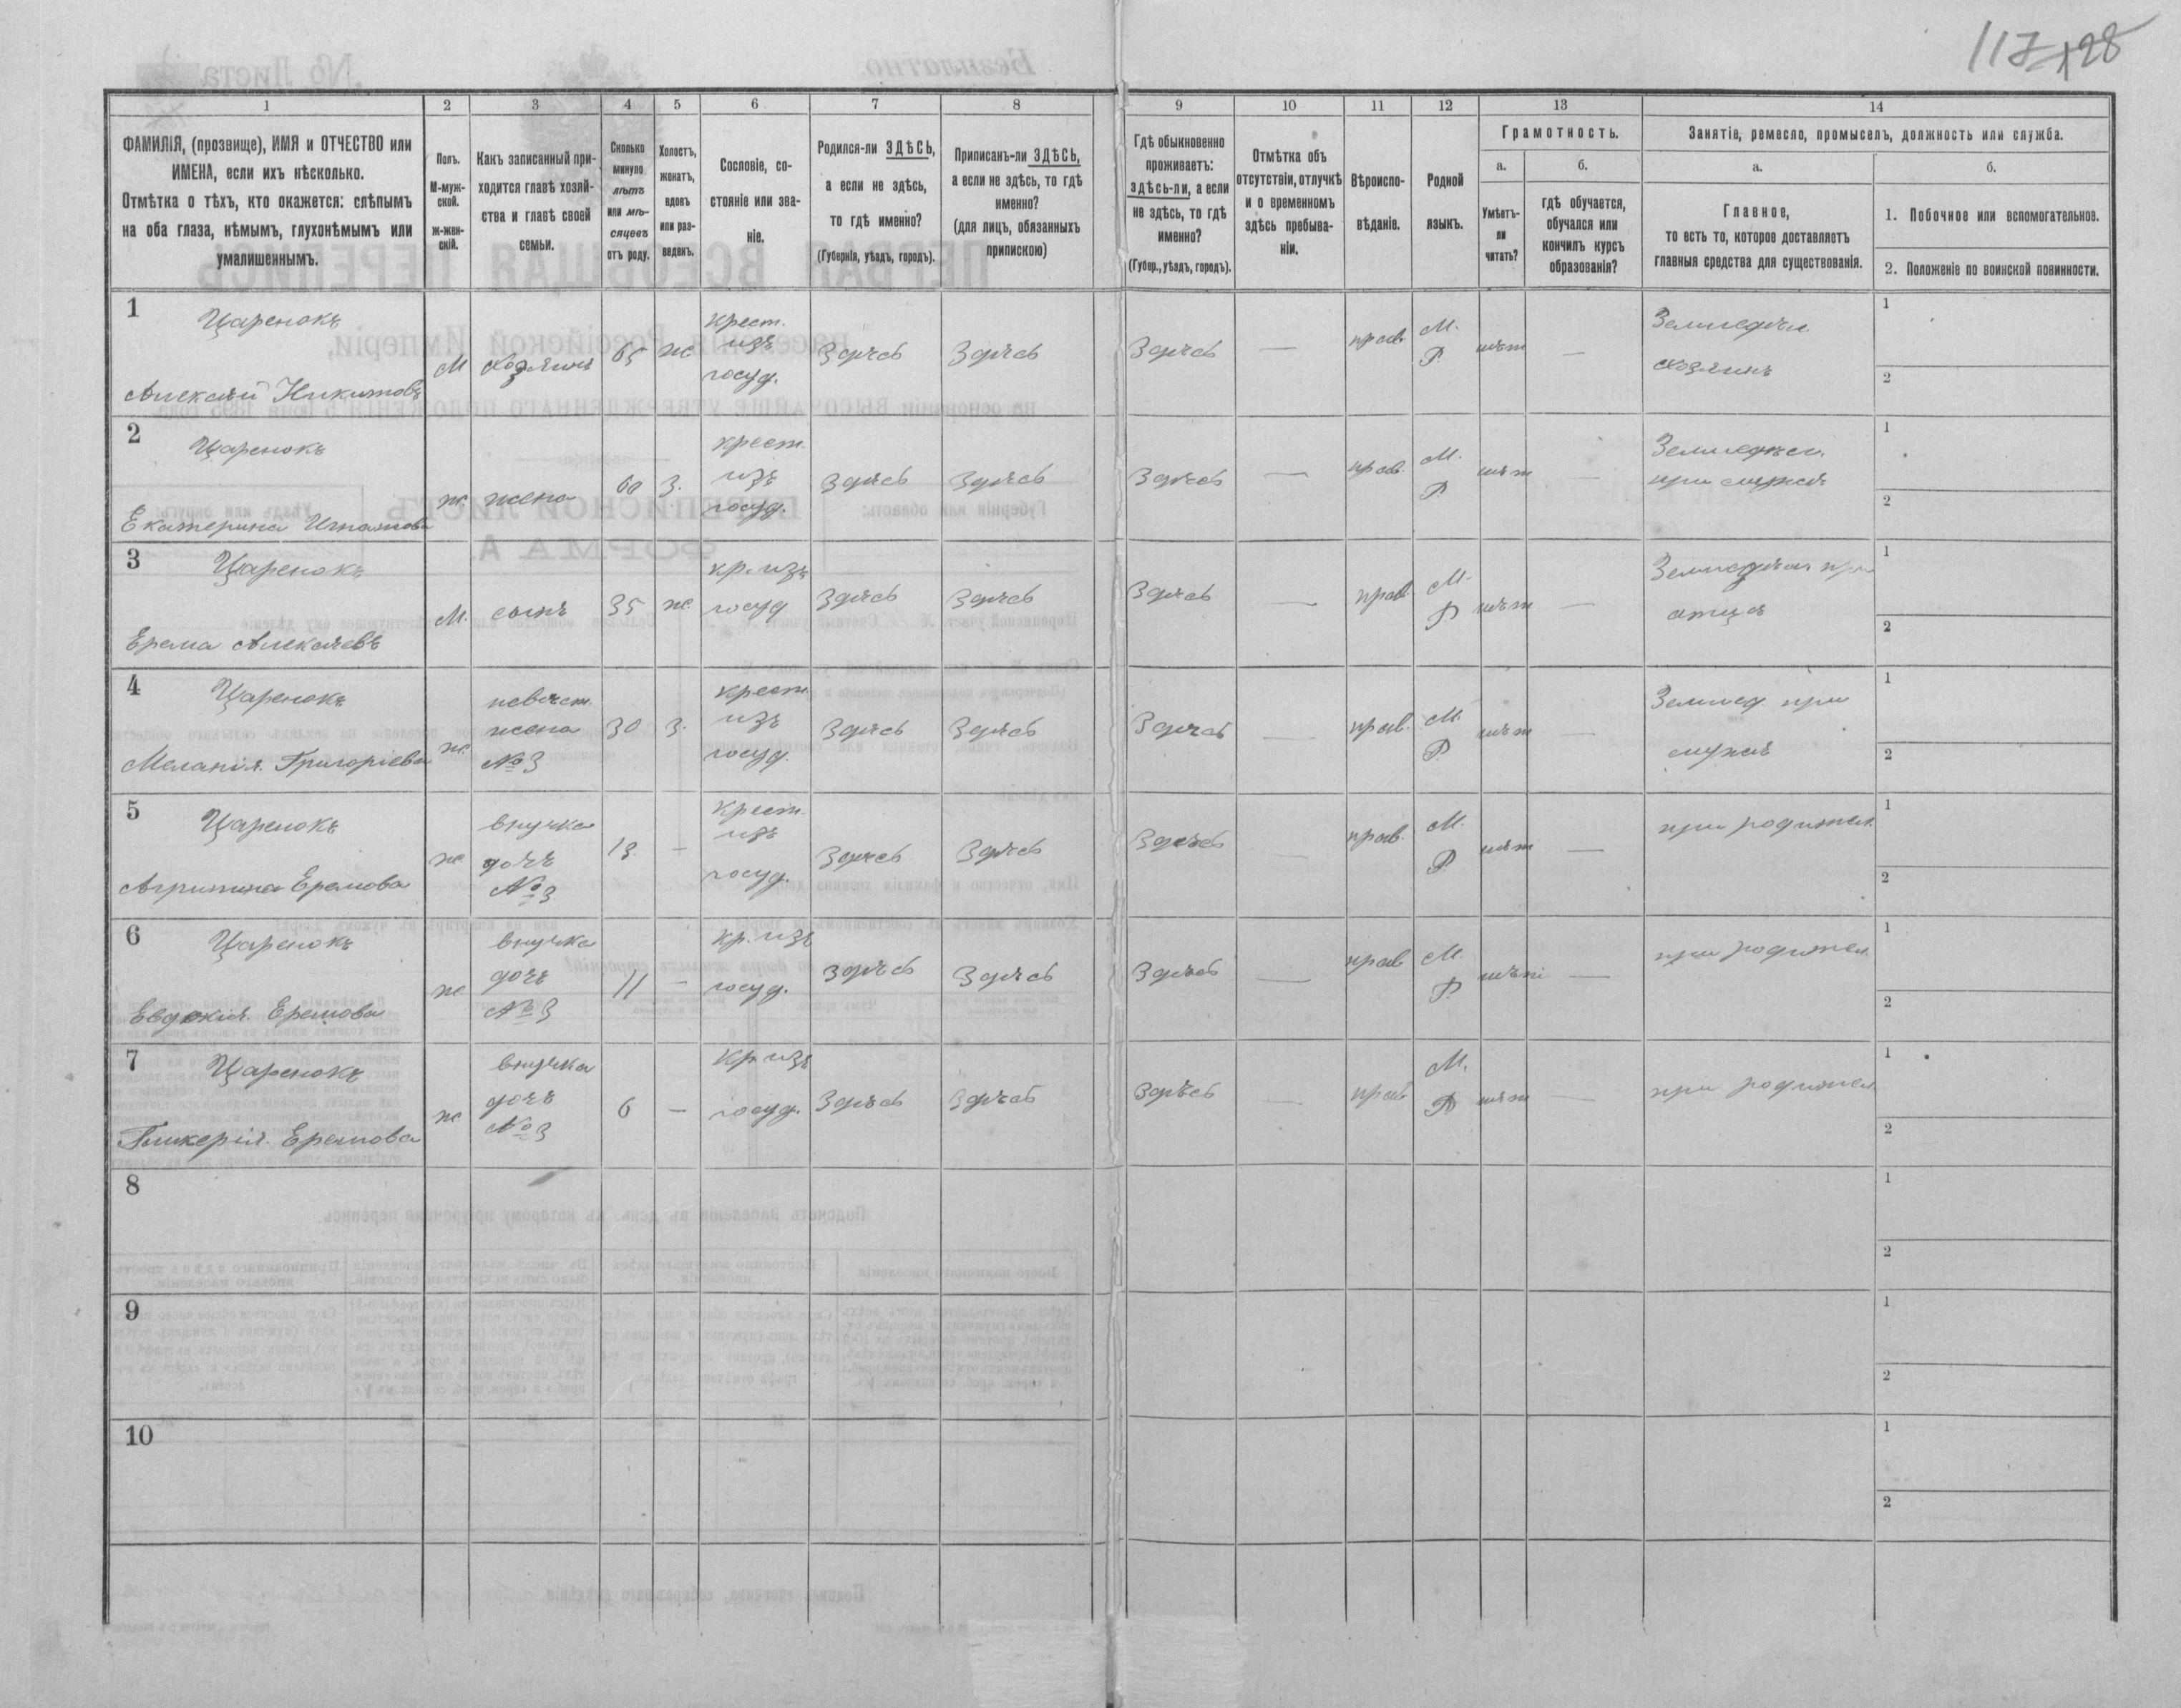 117 128
1 2 3 4 5 6 7 8 9 10 11 12 13 14
ФАМИЛІЯ, (прозвище), ИМЯ и ОТЧЕСТВО или
ИМЕНА, если ихъ нѣсколько.
Отмѣтка о тѣхъ, кто окажется: слѣпымъ
на оба глаза, нѣмымъ, глухонѣмымъ или
умалишеннымъ.
Полъ.
М-муж-
ской.
ж-жен-
скій.
Какъ записанный при-
ходится главѣ хозяй-
ства и главѣ своей
семьи.
Сколько
минуло
лѣтъ
или мѣ-
сяцевъ
отъ роду.
Холостъ,
женатъ,
вдовъ
или раз-
веденъ.
Сословіе, со-
стояніе или зва-
ніе.
Родился-ли ЗДѢСЬ,
а если не здѣсь,
то гдѣ именно?
(Губернія, уѣздъ, городъ).
Приписанъ-ли ЗДѢСЬ,
а если не здѣсь, то гдѣ
именно?
(для лицъ, обязанныхъ
припискою)
Гдѣ обыкновенно
проживаетъ:
здѣсь-ли, а если
не здѣсь, то гдѣ
именно?
(Губер., уѣздъ, городъ).
Отмѣтка объ
отсутствіи, отлучкѣ
и о временномъ
здѣсь пребыва-
ніи.
Вѣроиспо-
вѣданіе.
Родной
языкъ.
Грамотность.
а.
Умѣетъ-
ли
читать?
б.
гдѣ обучается,
обучался или
кончилъ курсъ
образованія?
Занятіе, ремесло, промыселъ, должность или служба.
а.
Главное,
то есть то, которое доставляетъ
главныя средства для существованія.
б.
1. Побочное или вспомогательное.
2. Положеніе по воинской повинности.
1
Царенокъ
Алексѣй Никитовъ
М
хозяинъ
65
ж
крест.
изъ
госуд.
Здѣсь
Здѣсь
Здѣсь
—
прав.
М.
Р.
нѣт
—
Земледѣл.
хозяинъ
1
2
2
Царенокъ
Екатерина Игнатова
ж.
жена
60
з.
крест.
изъ
госуд.
Здѣсь
Здѣсь
Здѣсь
—
прав.
М.
Р
нѣт
—
Земледѣл.
при мужѣ
1
2
3
Царенокъ
Ерема Алексѣевъ
М.
сынъ
35
ж.
кр. изъ
госуд
Здѣсь
Здѣсь
Здѣсь
—
прав.
М.
Р
нѣт
—
Земледѣл при
отцѣ
1
2
4
Царенокъ
Меланія Григоріева
ж.
невѣст.
жена
№3
30
з.
крест.
изъ
госуд.
Здѣсь
Здѣсь
Здѣсь
—
прав.
М.
Р.
нѣт
—
Землед при
мужѣ
1
2
5
Царенокъ
Агрипина Еремова
ж
внучка
дочь
№3
13
—
крест.
изъ
госуд.
Здѣсь
Здѣсь
Здѣсь
—
прав.
М.
Р
нѣт
—
при родител.
1
2
6
Царенокъ
Евдокія Еремова
ж
внучка
дочь
№3
11
—
кр. изъ
госуд.
Здѣсь
Здѣсь
Здѣсь
—
прав
М.
Р.
нѣт
—
при родител
1
2
7
Царенокъ
Гликерія Еремова
ж
внучка
дочь
№3
6
—
кр. изъ
госуд.
Здѣсь
Здѣсь
Здѣсь
—
прав
М.
Р
нѣт
—
при родител
1
2
8
1
2
9
1
2
10
1
2